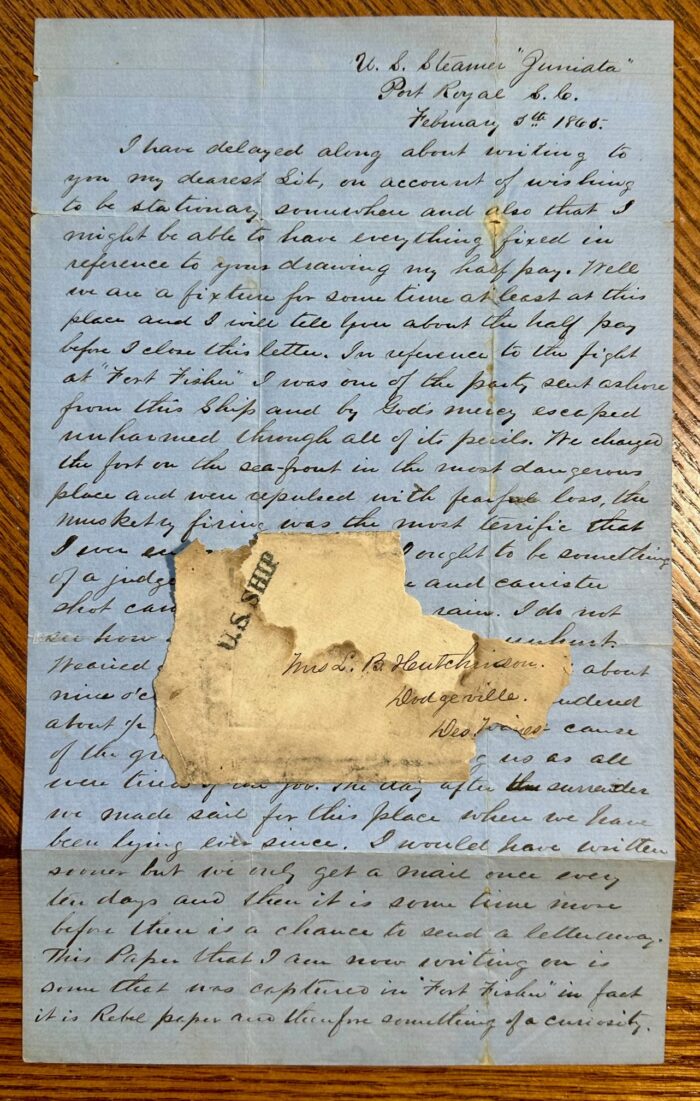 U. S. Steamer "Juniata"
Port Royal S. C.
February 5th 1865.
I have delayed along about writing to
you my dearest Lib, on account of wishing
to be stationary somewhere and also that I
might be able to have everything fixed in
reference to your drawing my half pay. Well
we are a fixture for some time at least at this
place and I will tell you about the half pay
before I close this letter. In reference to the fight
at "Fort Fisher" I was one of the party sent ashore
from this Ship and by God's mercy escaped
unharmed through all of its perils. We charged
the fort on the sea-front in the most dangerous
place and were repulsed with fearful loss, the
musketry firing was the most terrific that
I ever I ought to be something
of a judge and canister
shot rain. I do not
see how unhurt.
Wearied about
nine o'c
about
of the us as all
were tired of the job. The day after the surrender
we made sail for this place where we have
been lying ever since. I would have written
sooner but we only get a mail once every
ten days and then it is some time more
before there is a chance to send a letter away.
This Paper that I am now writing on is
some that was captured in "Fort Fisher" in fact
it is Rebel paper and therefore something of a curiosity.
U.S. SHIP
Mrs L. B. Hutchinson.
Dodgeville.
Des